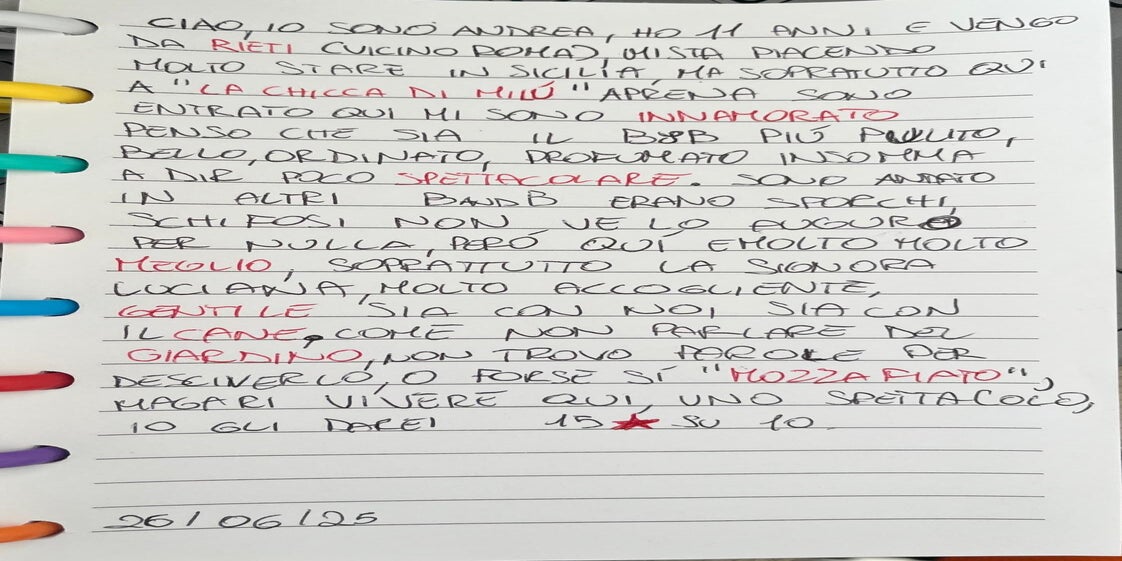 CIAO, IO SONO ANDREA, HO 11 ANNI E VENGO
DA RIETI (VICINO ROMA), MI STA PIACENDO
MOLTO STARE IN SICILIA, MA SOPRATUTTO QUI
A "LA CHICCA DI MILÚ" APPENA SONO
ENTRATO QUI MI SONO INNAMORATO
PENSO CHE SIA IL B&B PIÚ PULITO,
BELLO, ORDINATO, PROFUMATO INSOMMA
A DIR POCO SPETTACOLARE. SONO ANDATO
IN ALTRI BANDB ERANO SPORCHI,
SCHIFOSI NON VE LO AUGURO
PER NULLA, PERÓ QUI E MOLTO MOLTO
MEGLIO, SOPRATTUTTO LA SIGNORA
LUCIANA, MOLTO ACCOGLIENTE,
GENTILE SIA CON NOI, SIA CON
IL CANE, COME NON PARLARE DEL
GIARDINO, NON TROVO PAROLE PER
DESCIVERLO, O FORSE SÍ "MOZZAFIATO",
MAGARI VIVERE QUI, UNO SPETTACOLO,
IO GLI DAREI 15 ★ SU 10.
26/06/25